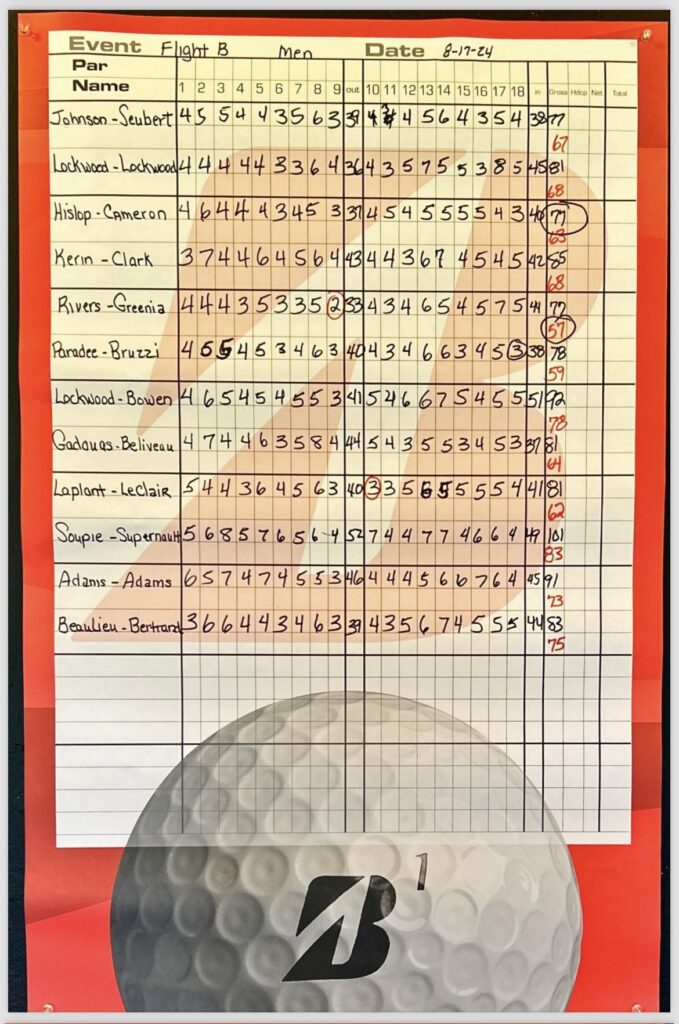 Event Flight B Men Date 8-17-24
Par
Name 1 2 3 4 5 6 7 8 9 out 10 11 12 13 14 15 16 17 18 in Gross Hdcp Net Total
Johnson-Seubert 4 5 5 4 4 3 5 6 3 39 4 4 5 6 4 3 5 4 38 77
67
Lockwood-Lockwood 4 4 4 4 4 3 3 6 4 36 4 3 5 7 5 5 3 8 5 45 81
68
Hislop-Cameron 4 6 4 4 4 3 4 5 3 37 4 5 4 5 5 5 5 4 3 40 77
63
Kerin-Clark 3 7 4 4 6 4 5 6 4 43 4 4 3 6 7 4 5 4 5 42 85
68
Rivers-Greenia 4 4 4 3 5 3 3 5 2 33 4 3 4 6 5 4 5 7 5 44 77
57
Paradee-Bruzzi 4 5 5 4 5 3 4 6 3 40 4 3 4 6 6 3 4 5 3 38 78
59
Lockwood-Bowen 4 6 5 4 5 4 5 5 3 41 5 4 6 6 7 5 4 5 5 51 92
78
Gadouas-Beliveau 4 7 4 4 6 3 5 8 4 44 5 4 3 5 5 3 4 5 3 37 81
64
Laplant-LeClair 5 4 4 3 6 4 5 6 3 40 3 3 5 6 5 5 5 5 4 41 81
62
Soupie-Supernault 5 6 8 5 7 6 5 6 4 52 7 4 4 7 7 4 6 6 4 49 101
83
Adams-Adams 6 5 7 4 7 4 5 5 3 46 4 4 4 5 6 6 7 6 4 45 91
73
Beaulieu-Bertrand 3 6 6 4 4 3 4 6 3 39 4 3 5 6 7 4 5 5 5 44 83
75
B 1